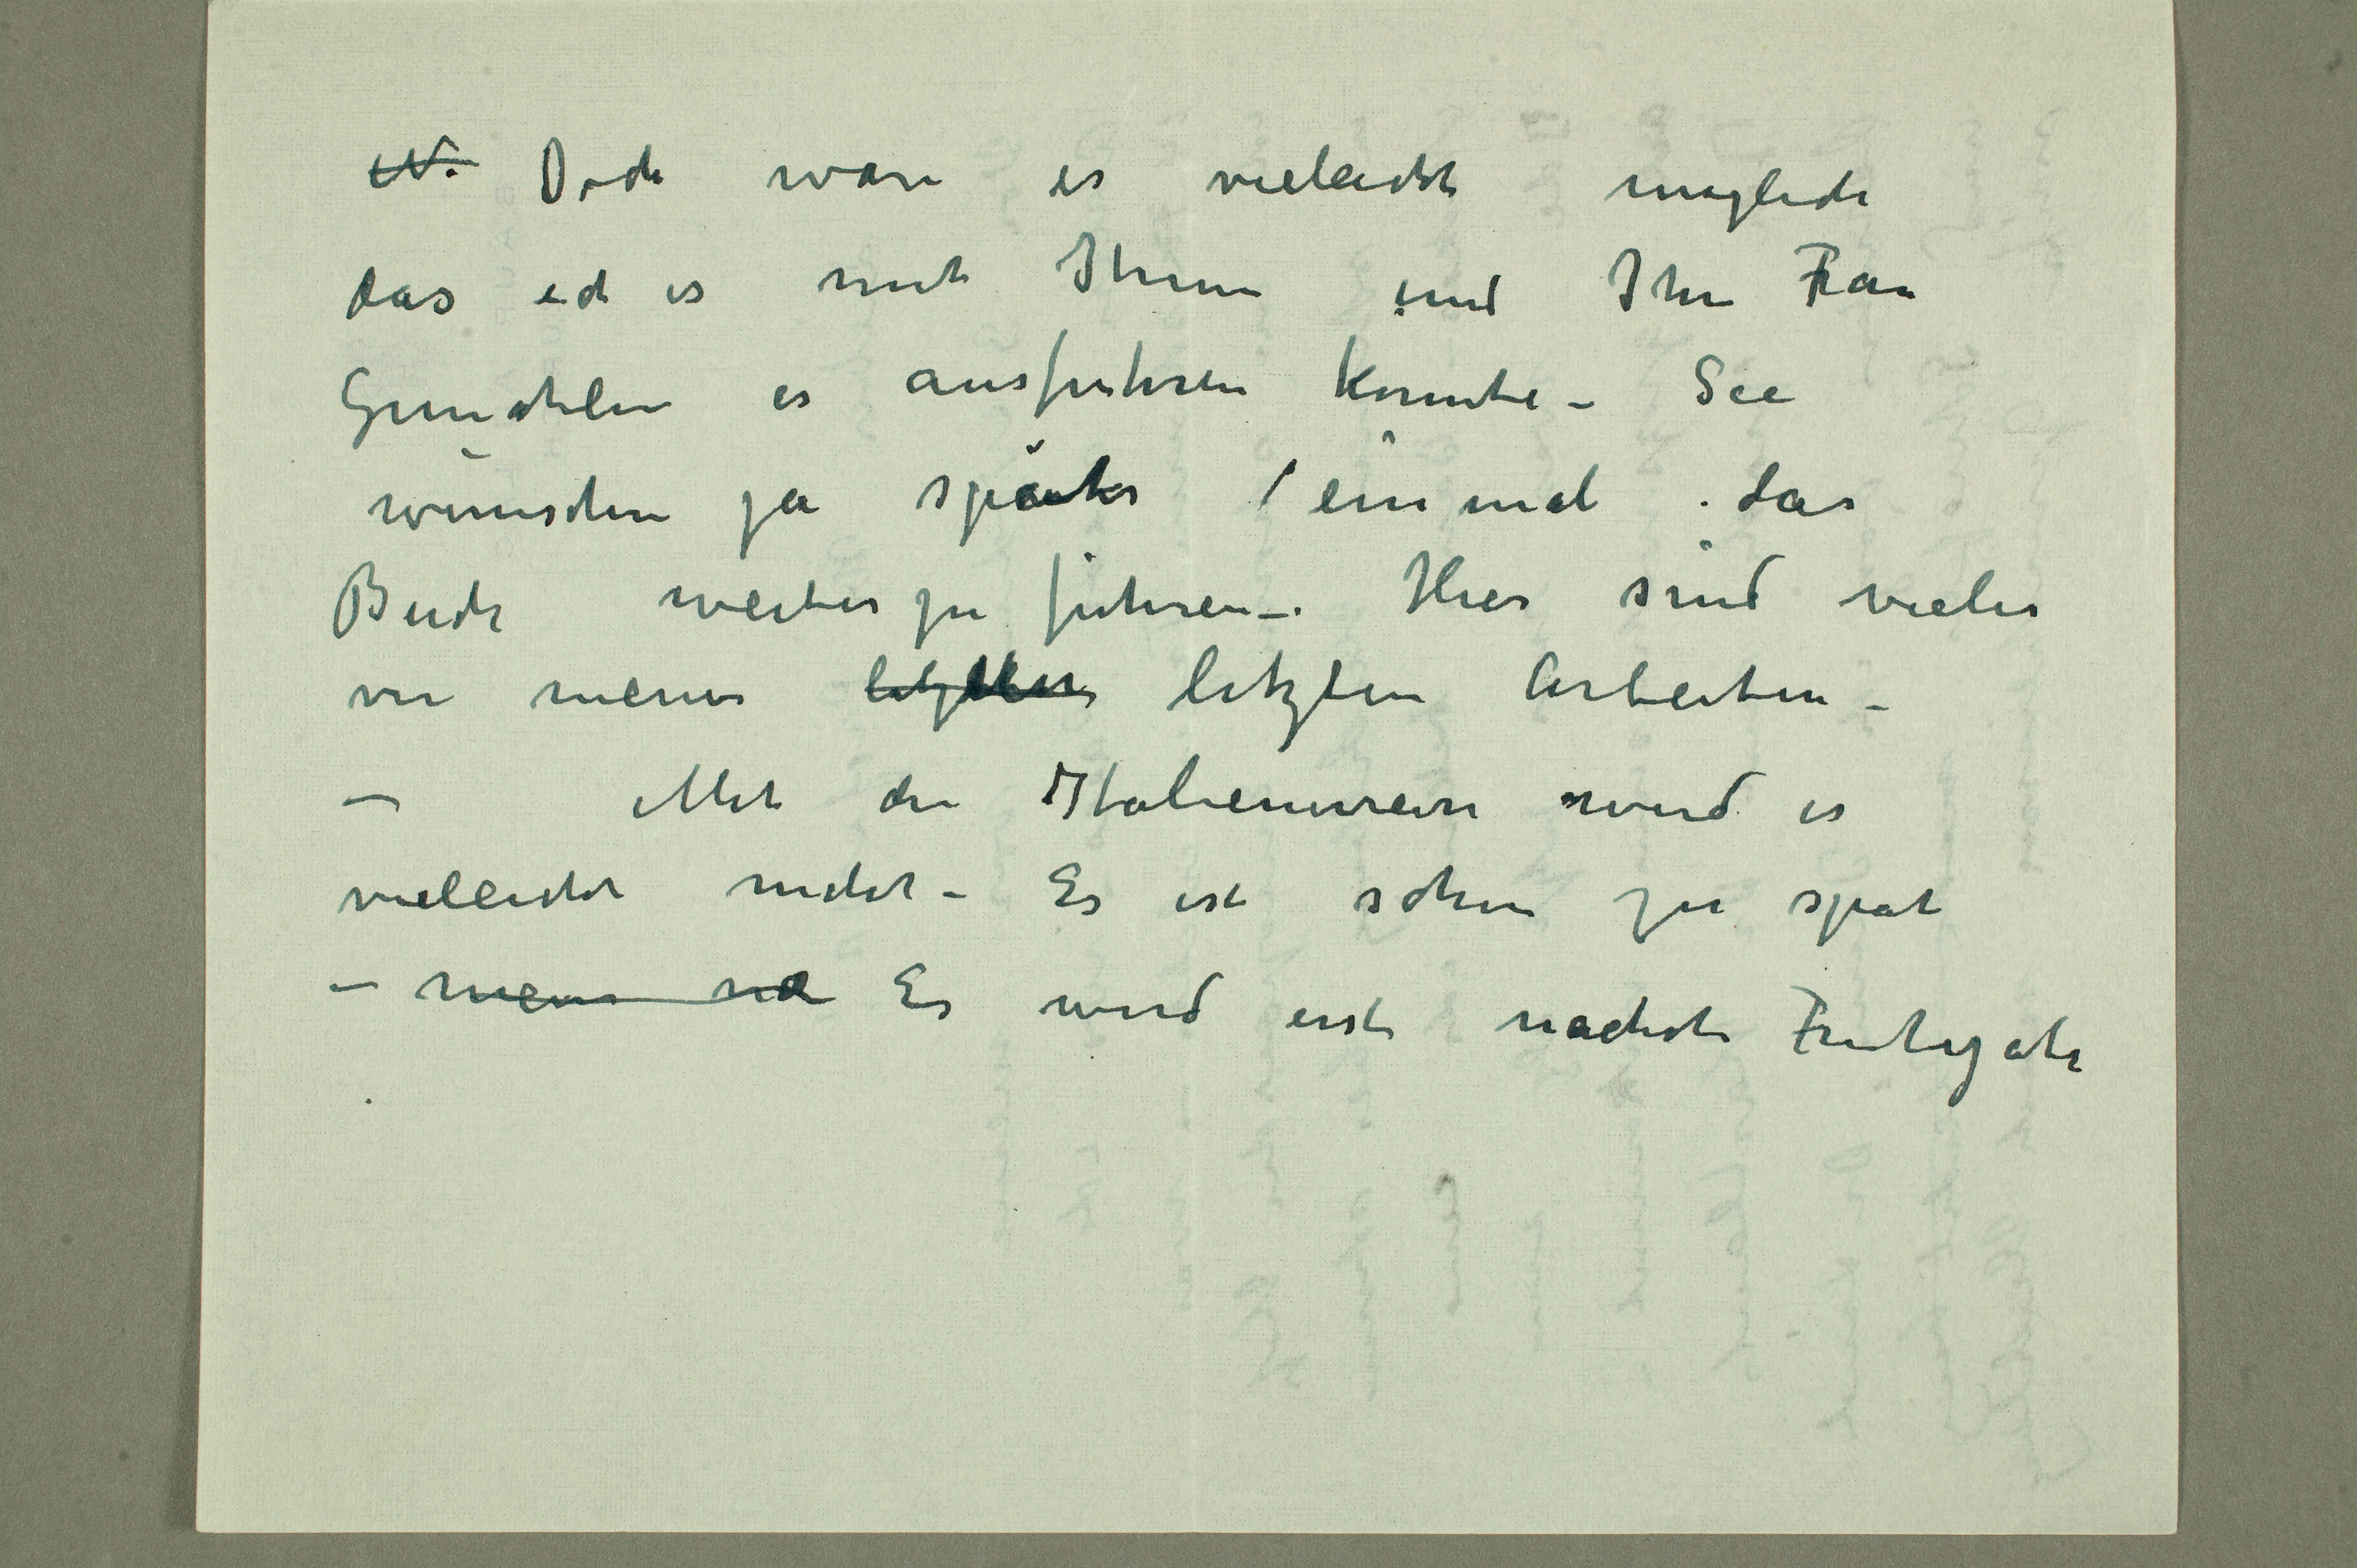 N. Doch wäre es vieleicht möglich
das ich es mit Ihnen und Ihre Frau
Gemahlin es ausfuhren konnte – Sie
wünschen ja später einmal das
Buch weiter zu führen –. Hier sind vieles
von meinen letzten Arbeiten –
– Mit den Italienerreise wird es
vielleicht nicht – Es ist schon zu spät
– mein nä Es wird erst nächst Fruhjahr